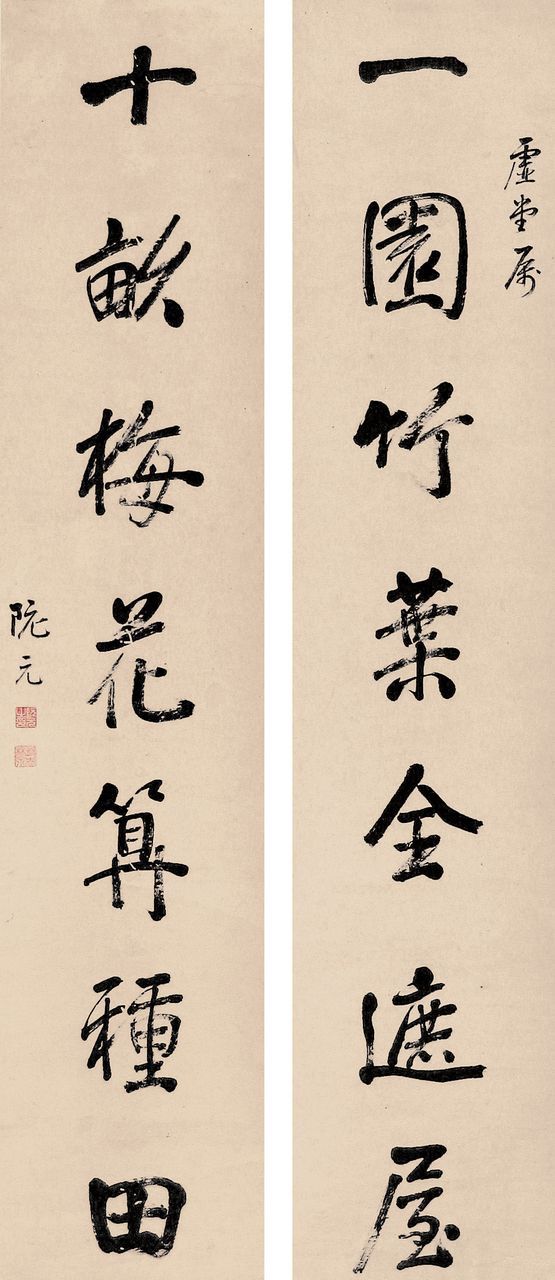 虛堂属
一園竹葉全遮屋
十畝梅花算種田
阮元